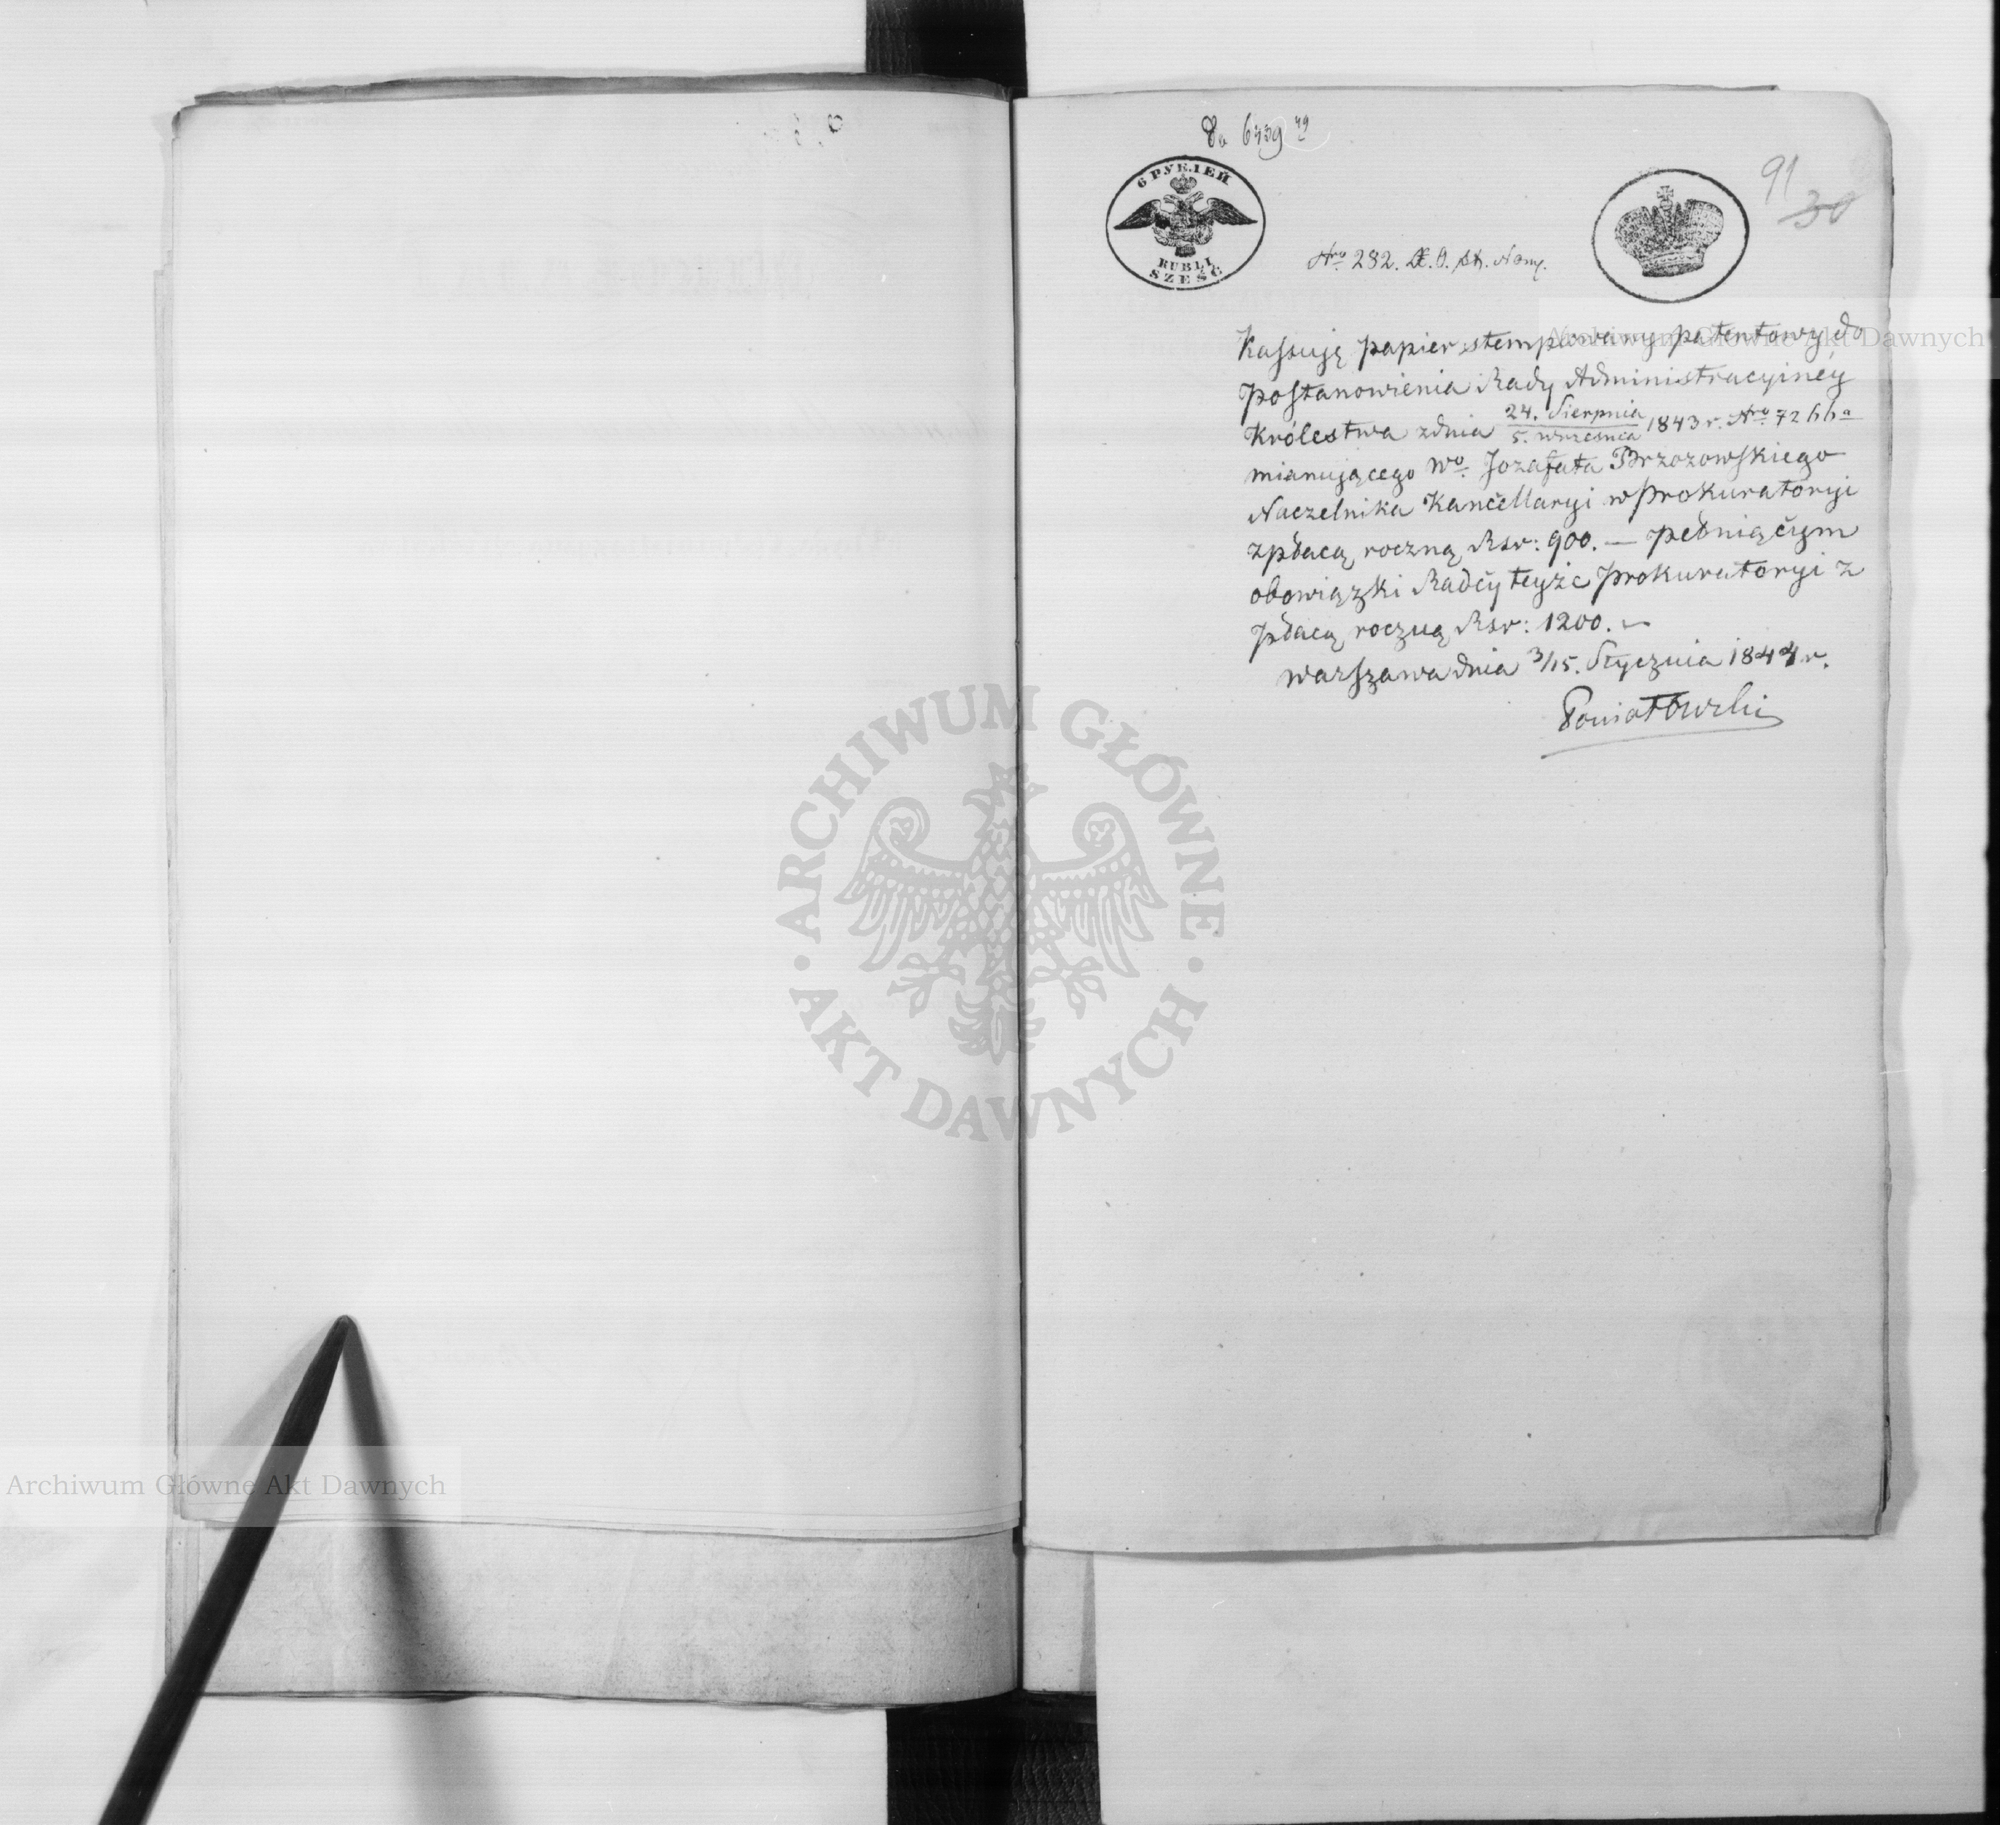 6439 49
6 РУБЛЕЙ.
RUBLI SZEŚĆ
91
30
Nro 282.
Kassuję papier stemplowany patentowy do
Postanowienia Rady Administracyiney
Królestwa zdnia 24. Sierpnia / 5. Września 1843 r. Nro 7266a
mianującego Wo. Jozafata Brzozowskiego
Naczelnika Kancellaryi w Prokuratoryi
z płacą roczną Rsr: 900. — pełniącym
obowiązki Radcy teyże Prokuratoryi z
płacą roczną Rsr: 1200. —
Warszawa dnia 3/15. Stycznia 1844 r.
Poniatowski
Archiwum Główne Akt Dawnych
ARCHIWUM GŁÓWNE · AKT DAWNYCH ·
Archiwum Główne Akt Dawnych